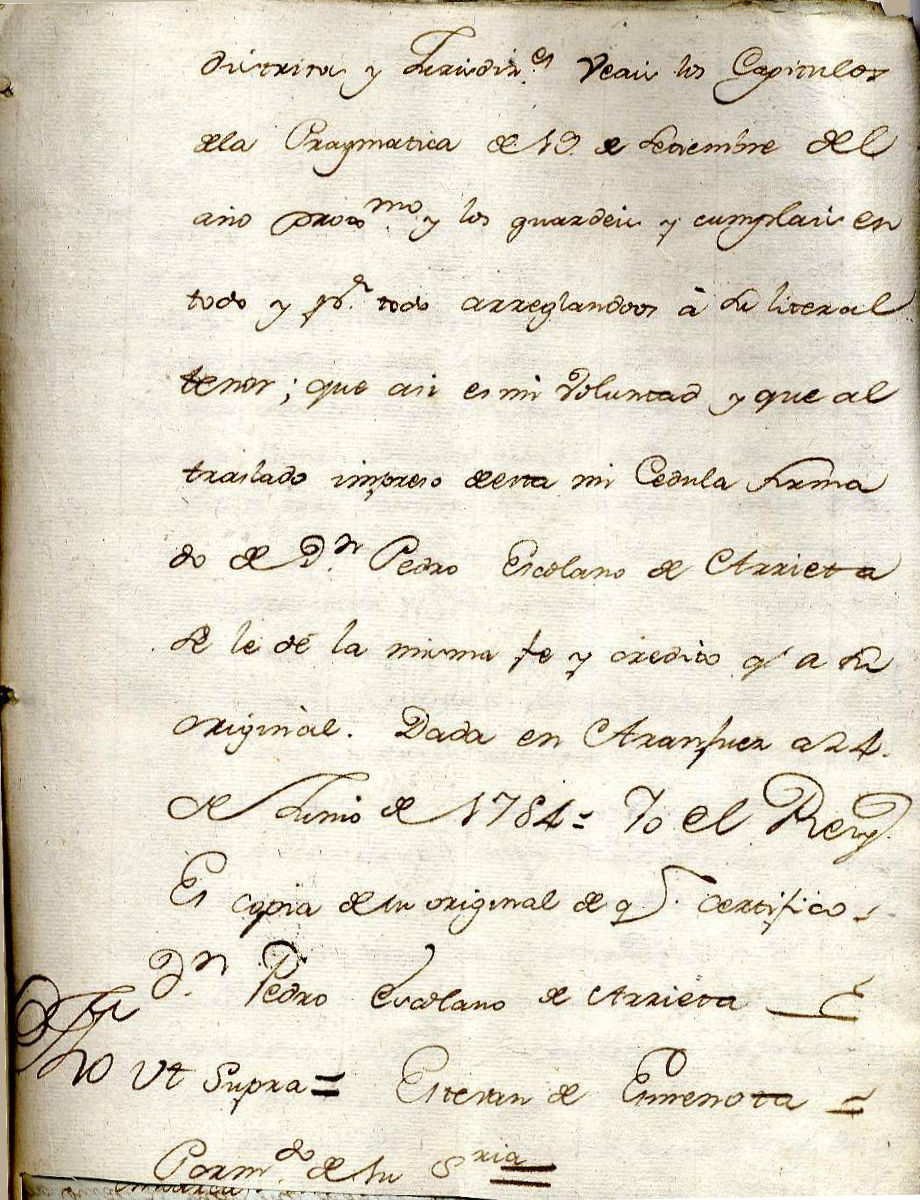 distritos y Jurisdin.es Veais los Capitulos
dela Pragmatica de 19. de Setiembre del
año proxmo. y los guardeis y cumplais en
todo y pr. todo arreglandoos à su literal
tenor; que asi es mi Voluntad y que al
traslado impreso de esta mi Cedula firma
do de Dn. Pedro Escolano de Arrieta
se le dé la misma fe y credito q.e a su
original. Dada en Aranjuez a 24.
de Junio de 1784 = Yo el Rey
Es copia de su original de q.e certifico =
Dn. Pedro Escolano de Arrieta
Ut Supra = Estevan de =
Por mdo. de su Sria =